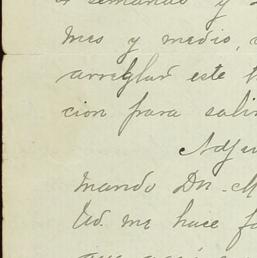 semanas y
mes y medio,
arreglar este
cion para salir
Adju
mando Dn. M
Ud. me hace fa